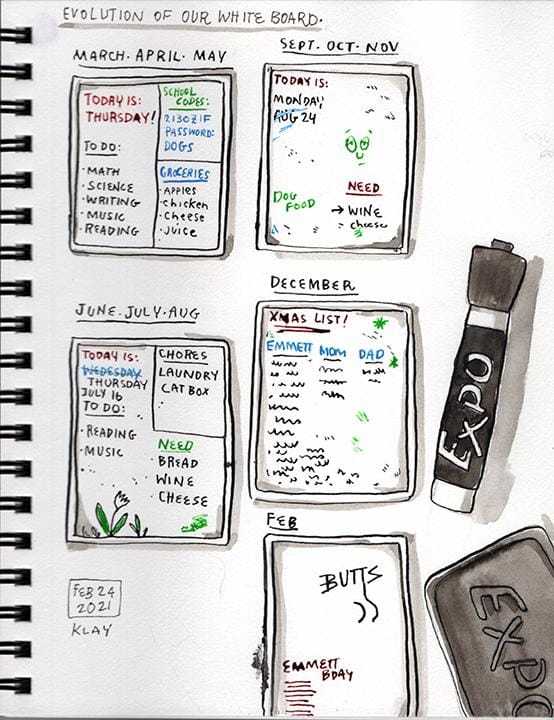 EVOLUTION OF OUR WHITE BOARD.
MARCH. APRIL. MAY
TODAY IS:
THURSDAY!
TO DO:
·MATH
·SCIENCE
·WRITING
·MUSIC
·READING
SCHOOL
CODES:
2130Z1F
PASSWORD:
DOGS
GROCERIES
·APPLES
·chicken
·cheese
·Juice
JUNE. JULY. AUG
TODAY IS:
WEDESDAY
THURSDAY
JULY 16
TO DO:
·READING
·MUSIC
CHORES
LAUNDRY
CAT BOX
:
NEED
·BREAD
·WINE
·CHEESE
SEPT. OCT. NOV
TODAY IS:
MONDAY
AUG 24
DOG
FOOD
NEED
→ WINE
·cheese
DECEMBER
XMAS LIST!
EMMETT MOM DAD
FEB
BUTTS
EMMETT
BDAY
EXPO
EXPO
FEB 24
2021
KLAY